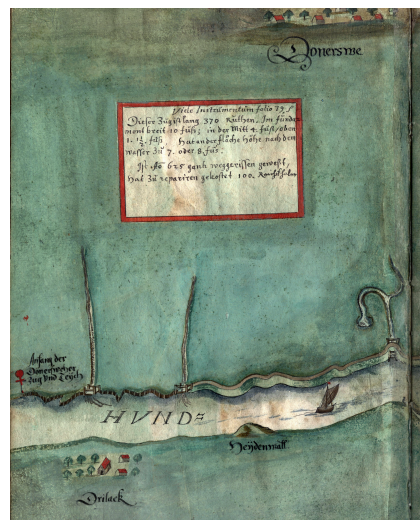 Donerswe
Vide Instrumentum folio 39
Dieser Zug ist lang 370 Ruthen. Im funda
ment breit 10 fuß; in der Mitt 4. fuß, oben
1. 1½. fuß. Hat an der fläche Höhe nach dem
wasser zu 7. oder 8. fus.
Ist Ao 675 gantz weggerissen gewest,
hat zu repariren gekostet 100.
Anfang der
Donerswer
Zug und Teych
HVND=
Heydenwall.
Drilack